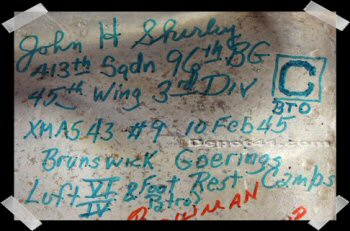 John H Shirley
413th Sqdn 96th BG
45th Wing 3rd Div
C
BTO
XMAS 43 #9 10 Feb 45
Depot41.com
Brunswick Goerings
Luft VI & Foot Rest Camps
IV Patrol
BOWMAN